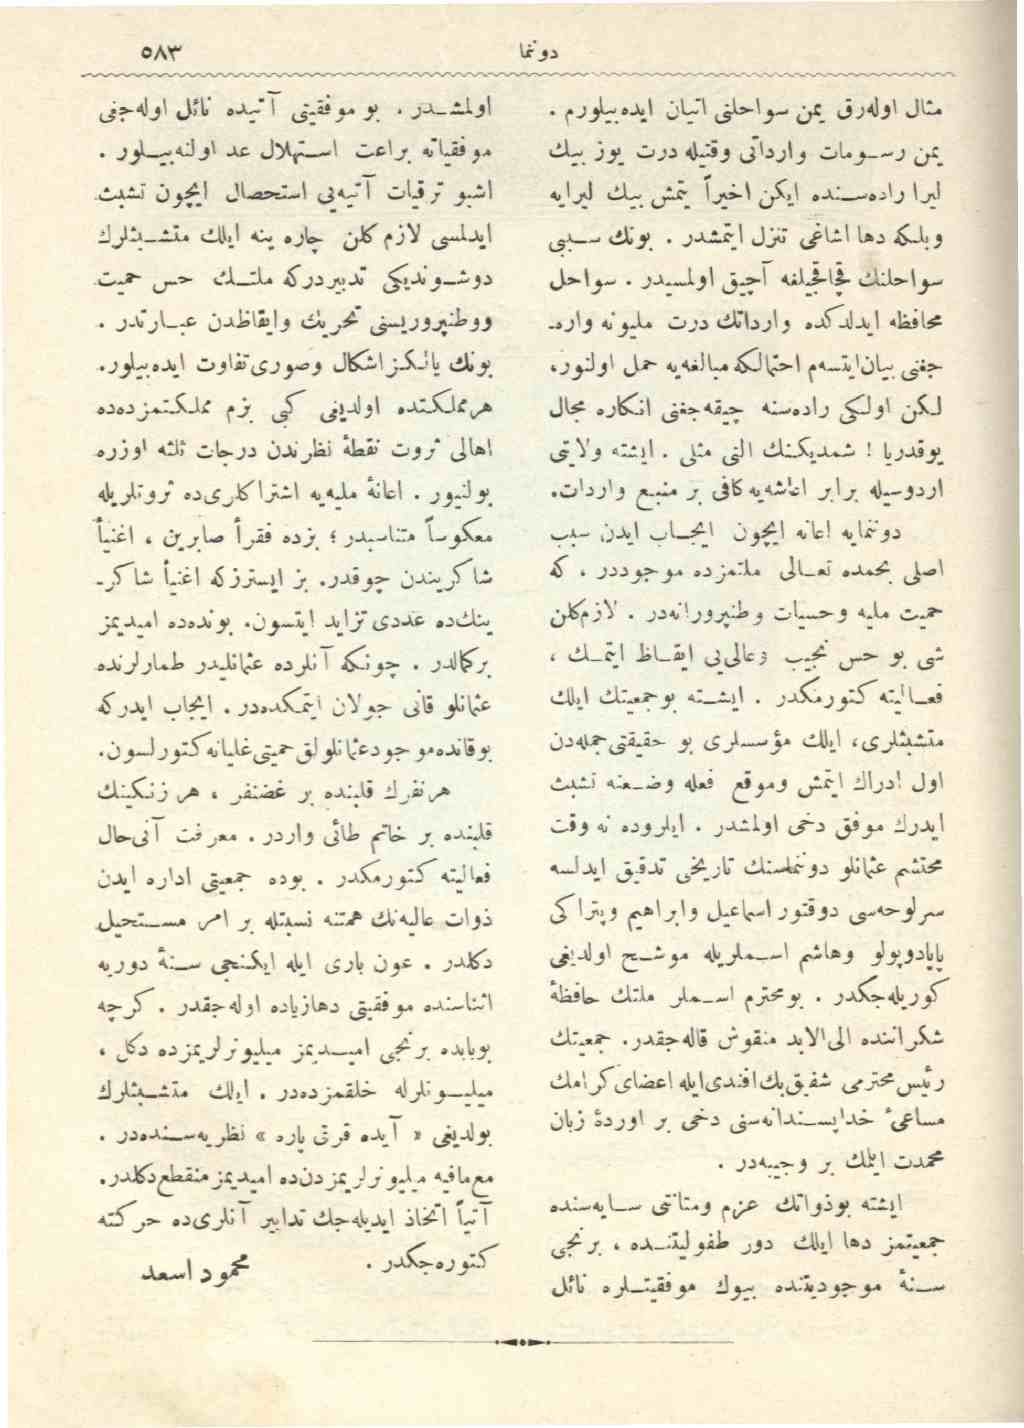 دونما
٥٨٣
مثال اوله‌رق يمن سواحلنی اتيان ايده‌بيلورم .
يمن رســومات وارداتی وقتيله درت يوز بيك
ليرا راده‌ســنده ايكن اخيراً يتمش بيك ليرايه
وبلكه دها اشاغی تنزل ايتمشدر . بونك ســببی
سواحلنك قچاقچيلغه آچيق اولمسيدر . سواحل
محافظه ايدلدكده وارداتك درت مليونه واره‌ـ
جغنی بيان‌ايتسه‌م احتمالكه مبالغه‌يه حمل اولنور،
لكن اولكی راده‌سنه چيقه‌جغنی انكاره مجال
يوقدريا ! شمديكينك التی مثلی . ايشته ولايتی
اردوسيله برابر اعاشه‌يه كافی بر منبع واردات.
دونمايه اعانه ايچون ايجــاب ايدن سبب
اصلی بحمده تعــالی ملتمزده موجوددر ، كه
حميت مليه وحسيات وطنپرورانه‌در . لازم‌كلن
شی بو حس نجيب وعالی‌يی ايقــاظ ايتمــك ،
فعــاليته كتورمكدر . ايشــته بوجمعيتك ايلك
متشبثلری، ايلك مؤسسلری بو حقيقتی جمله‌دن
اول ادراك ايتمش وموقع فعله وضــعنه تشبث
ايدرك موفق دخی اولمشدر . ايلروده نه وقت
محتشم عثمانلو دونماسنك تاريخی تدقيق ايدلسه
سرلوحه‌سی دوقتور اسماعيل وابراهيم وپتراكی
پاپادوپولو وهاشم اســملريله موشــح اولديغی
كوريله‌جكدر . بومحترم اســملر ملتك حافظهٔ
شكرانده الی‌الابد منقوش قاله‌جقدر. جمعيتك
رئيس محترمی شفيق‌بك‌افندی‌ايله اعضای‌كرامك
مساعیء خداپســندانه‌سنی دخی بر اوردهٔ زبان
محمدت ايلمك بر وجيبه‌در .
ايشته بوذواتك عزم ومتانتی ســايه‌سنده
جمعيتمز دها ايلك دور طفوليتنــده ، برنجی
ســنهٔ موجوديتنده بيوك موفقيتــلره نائل
اولمشــدر . بو موفقيتی آتيده نائل اوله‌جغی
موفقياته براعت اســتهلال عد اولنه‌بيــلور .
اشبو ترقيات آتيه‌يی استحصال ايچون تشبث
ايدلمسی لازم كلن چاره ينه ايلك متشــبثلرك
دوشــونديكی تدبيردركه ملتــك حس حميت
ووطنپروريسنی تحريك وايقاظدن عبــارتدر .
بونك يالكز اشكال وصوری تفاوت ايده‌بيلور.
هرمملكتده اولديغی كبی بزم مملكتمزده‌ده
اهالی ثروت نقطهٔ نظرندن درجات ثلثه اوزره
بولنيور . اعانهٔ مليه‌يه اشتراكلری‌ده ثروتلريله
معكوساً متناسبدر ؛ بزده فقرأ صابرين ، اغنيأ
شاكريندن چوقدر. بز ايسترزكه اغنيأ شاكرـ
ينك‌ده عددی تزايد ايتسون. بونده‌ده اميديمز
بركمالدر . چونكه آنلرده عثمانليدر طمارلرنده
عثمانلو قانی جولان ايتمكده‌در. ايجاب ايدركه
بوقانده‌موجودعثمانلولق حميتی‌غليانه‌كتورلسون.
هرنفرك قلبنده بر غضنفر ، هر زنكينك
قلبنده بر خاتم طائی واردر. معرفت آنی‌حال
فعاليته كتورمكدر . بوده جمعيتی اداره ايدن
ذوات عاليه‌نك همتنه نسبتله بر امر مســتحيل
دكلدر . عون باری ايله ايكنجی ســنهٔ دوريه
اثناسنده موفقيتی دهازياده اوله‌جقدر . كرچه
بوبابده برنجی اميــديمز ميليونرلريمزده دكل ،
ميليــونلرله خلقمزده‌در . ايلك متشــبثلرك
بولديغی « آيده قرق پاره » نظريه‌ســنده‌در .
مع‌مافيه ميليونرلريمزدن‌ده اميديمز منقطع‌دكلدر.
آتياً اتخاذ ايديله‌جك تدابير آنلری‌ده حركته
كتوره‌جكدر .
محمود اسعد